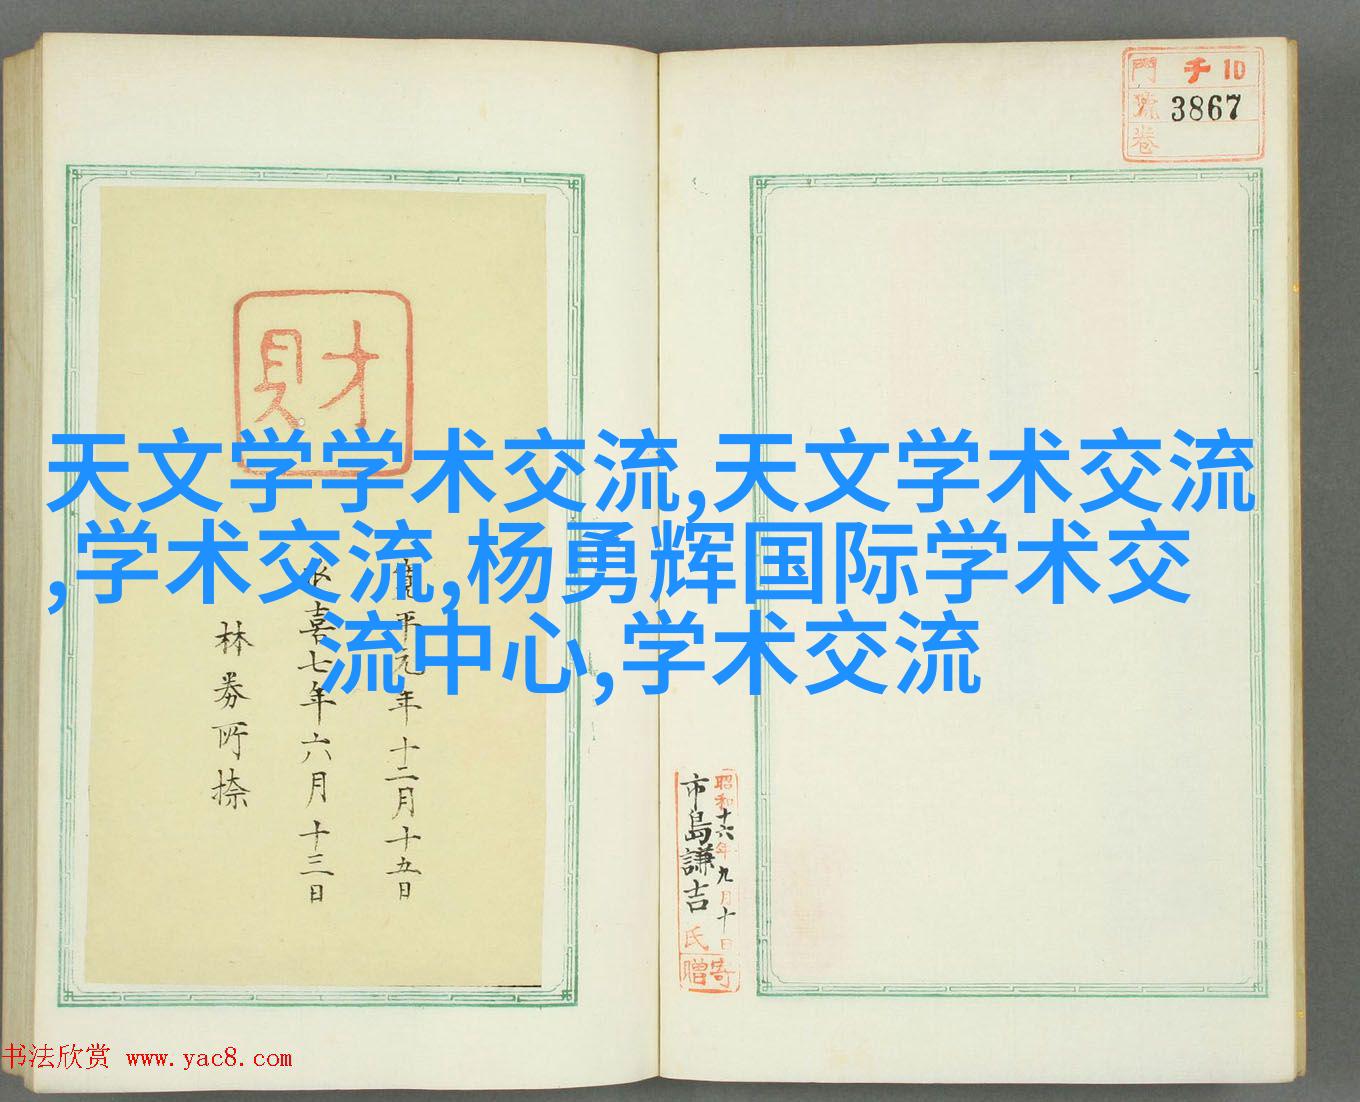 門 千10
號 3867
卷
財
天文学学术交流,天文学术交流
,学术交流,杨勇辉国际学术交
流中心,学术交流
寛平元年十二月十五日
永喜七年六月十三日
林券所捺
昭和十六年九月十日
市島謙吉氏寄贈
书法欣赏 www.yac8.com